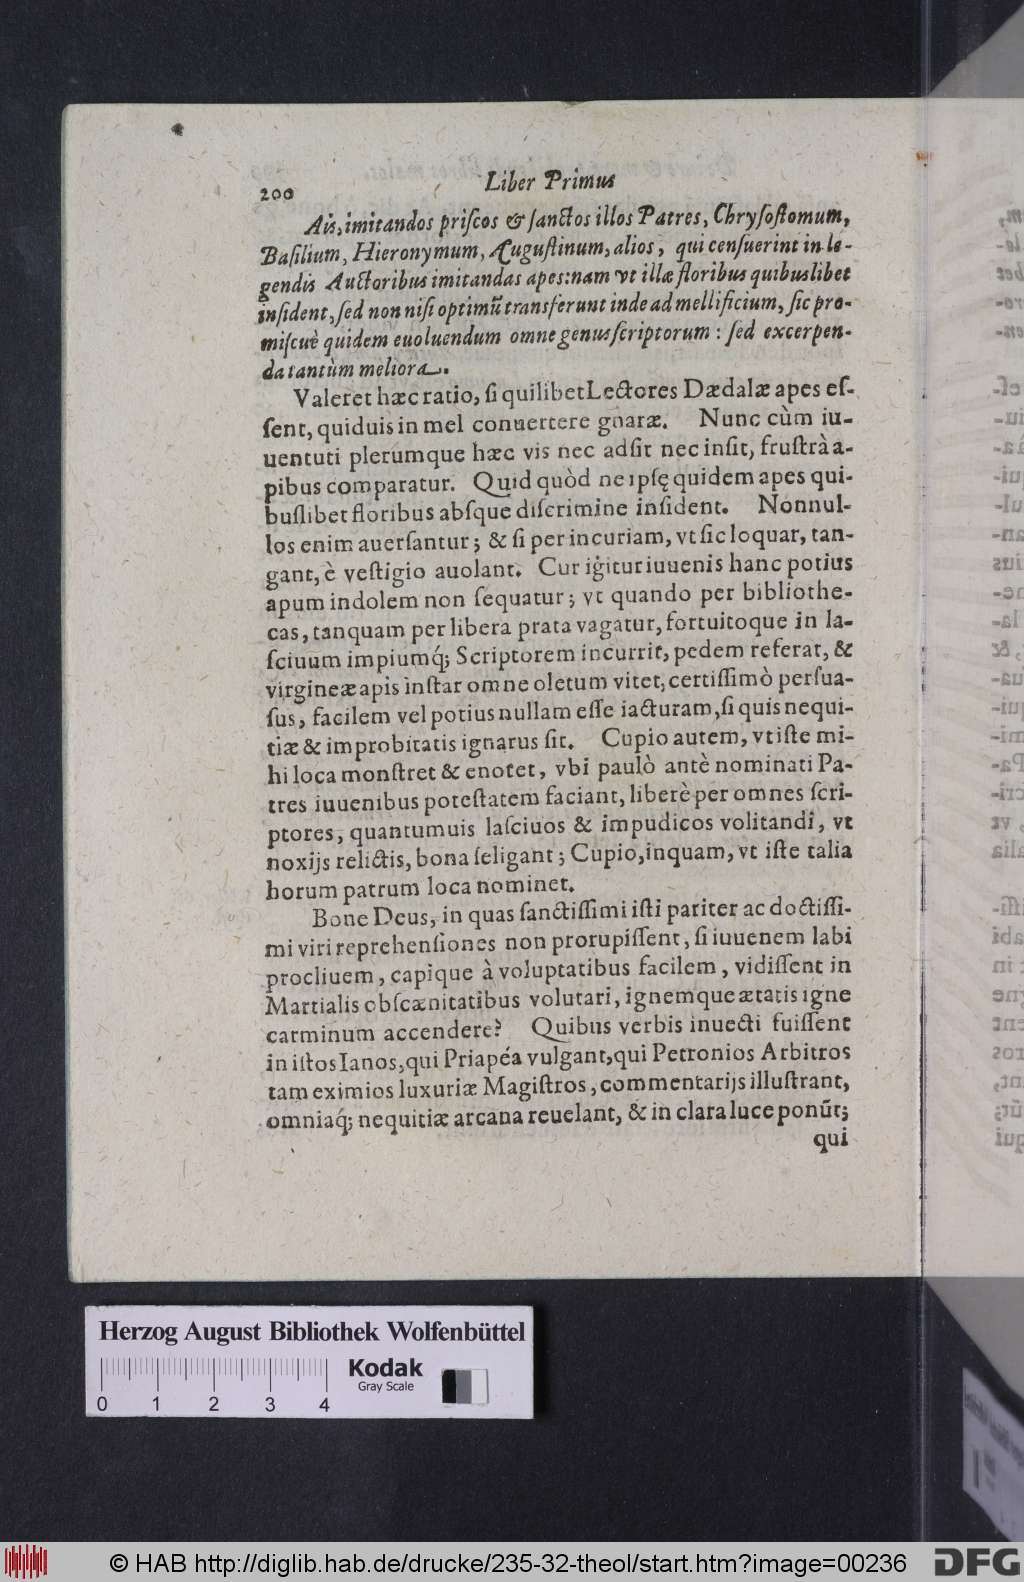 200 Liber Primus
Ais, imitandos priſcos & ſanctos illos Patres, Chryſoſtomum,
Baſilium, Hieronymum, Auguſtinum, alios, qui cenſuerint in le-
gendis Auctoribus imitandas apes: nam vt illæ floribus quibuslibet
inſident, ſed non niſi optimũ transferunt inde ad mellificium, ſic pro-
miſcuè quidem euoluendum omne genus ſcriptorum: ſed excerpen-
da tantùm meliora.
Valeret hæc ratio, ſi quilibet Lectores Dædalæ apes eſ-
ſent, quiduis in mel conuertere gnaræ. Nunc cùm iu-
uentuti plerumque hæc vis nec adſit nec inſit, fruſtrà a-
pibus comparatur. Quid quòd ne ipſę quidem apes qui-
buſlibet floribus abſque diſcrimine inſident. Nonnul-
los enim auerſantur; & ſi per incuriam, vt ſic loquar, tan-
gant, è veſtigio auolant. Cur igitur iuuenis hanc potius
apum indolem non ſequatur; vt quando per bibliothe-
cas, tanquam per libera prata vagatur, fortuitoque in la-
ſciuum impiumq́; Scriptorem incurrit, pedem referat, &
virgineæ apis inſtar omne oletum vitet, certiſſimò perſua-
ſus, facilem vel potius nullam eſſe iacturam, ſi quis nequi-
tiæ & improbitatis ignarus ſit. Cupio autem, vt iſte mi-
hi loca monſtret & enotet, vbi paulò antè nominati Pa-
tres iuuenibus poteſtatem faciant, liberè per omnes ſcri-
ptores, quantumuis laſciuos & impudicos volitandi, vt
noxijs relictis, bona ſeligant; Cupio, inquam, vt iſte talia
horum patrum loca nominet.
Bone Deus, in quas ſanctiſſimi iſti pariter ac doctiſſi-
mi viri reprehenſiones non prorupiſſent, ſi iuuenem labi
procliuem, capique à voluptatibus facilem, vidiſſent in
Martialis obſcænitatibus volutari, ignemque ætatis igne
carminum accendere? Quibus verbis inuecti fuiſſent
in iſtos Ianos, qui Priapéa vulgant, qui Petronios Arbitros
tam eximios luxuriæ Magiſtros, commentarijs illuſtrant,
omniaq́; nequitiæ arcana reuelant, & in clara luce ponũt;
qui
Herzog August Bibliothek Wolfenbüttel
Kodak
Gray Scale
0 1 2 3 4
© HAB http://diglib.hab.de/drucke/235-32-theol/start.htm?image=00236
DFG